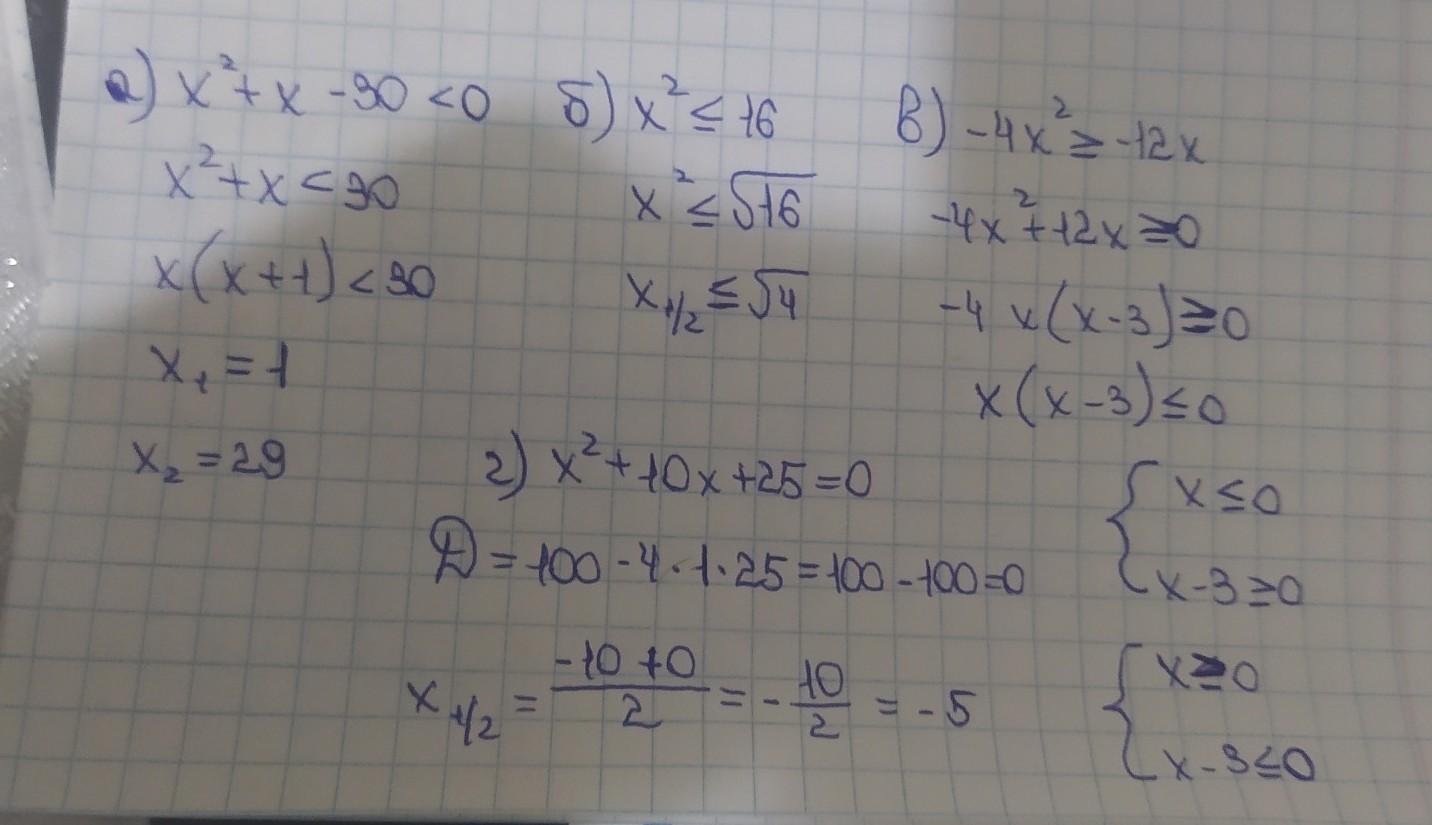 а) x² + x - 30 < 0
x² + x < 30
x(x + 1) < 30
x₁ = 1
x₂ = 29
б) x² ≤ 16
x² ≤ √16
x₁/₂ ≤ √4
в) -4x² ≥ -12x
-4x² + 12x ≥ 0
-4x(x - 3) ≥ 0
x(x - 3) ≤ 0
{ x ≤ 0
x - 3 ≥ 0
{ x ≥ 0
x - 3 ≤ 0
г) x² + 10x + 25 = 0
D = 100 - 4 · 1 · 25 = 100 - 100 = 0
x₁/₂ = (-10 + 0)/2 = - 10/2 = - 5